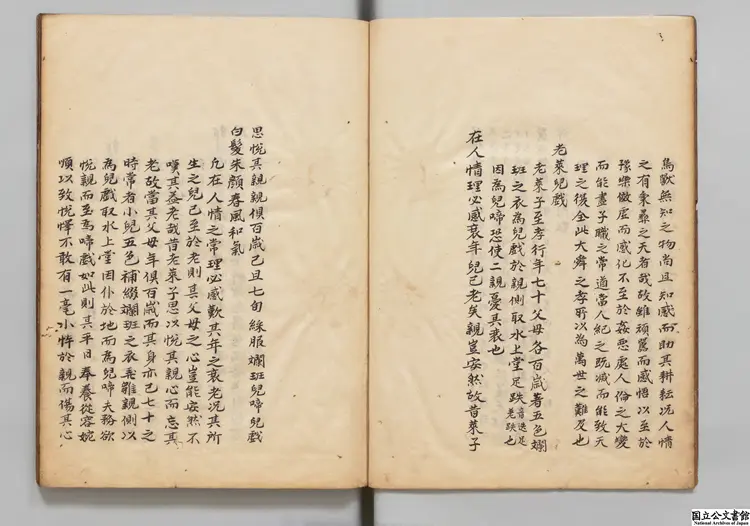 鳥獸無知之物尚且知感而助其耕耘況人情
之有秉彝之天者哉故雖頑嚚而感悟以至於
豫樂傲虐而感化不至於姦惡處人倫之大變
而能盡子職之常道當人紀之旣滅而能致天
理之復全此大舜之孝所以為萬世之難及也
老萊兒戲
老萊子至孝行年七十父母各百歲著五色斕
班之衣為兒戲於親側取水上堂足跌音迭足老跌也
因為兒啼恐使二親憂其衰也
在人情理必感衰年兒已老矣親豈安然故昔萊子
思悅其親親俱百歲己且七旬綵服斕班兒啼兒戲
白髮朱顏春風和氣
凡在人情之常理必感歎其年之衰老況其所
生之兒已至於老則其父母之心豈能安然不
嘆其益老哉昔老萊子思以悅其親心而忘其
老故當其父母年俱百歲而其身亦已七十之
時常著小兒五色補綴斕班之衣弄雛親側以
為兒戲取水上堂因仆於地而為兒啼夫務欲
悅親而至為啼戲如此則其平日奉養從容婉
順以致悅懌不敢有一毫小忤於親而傷其心
国立公文書館
National Archives of Japan